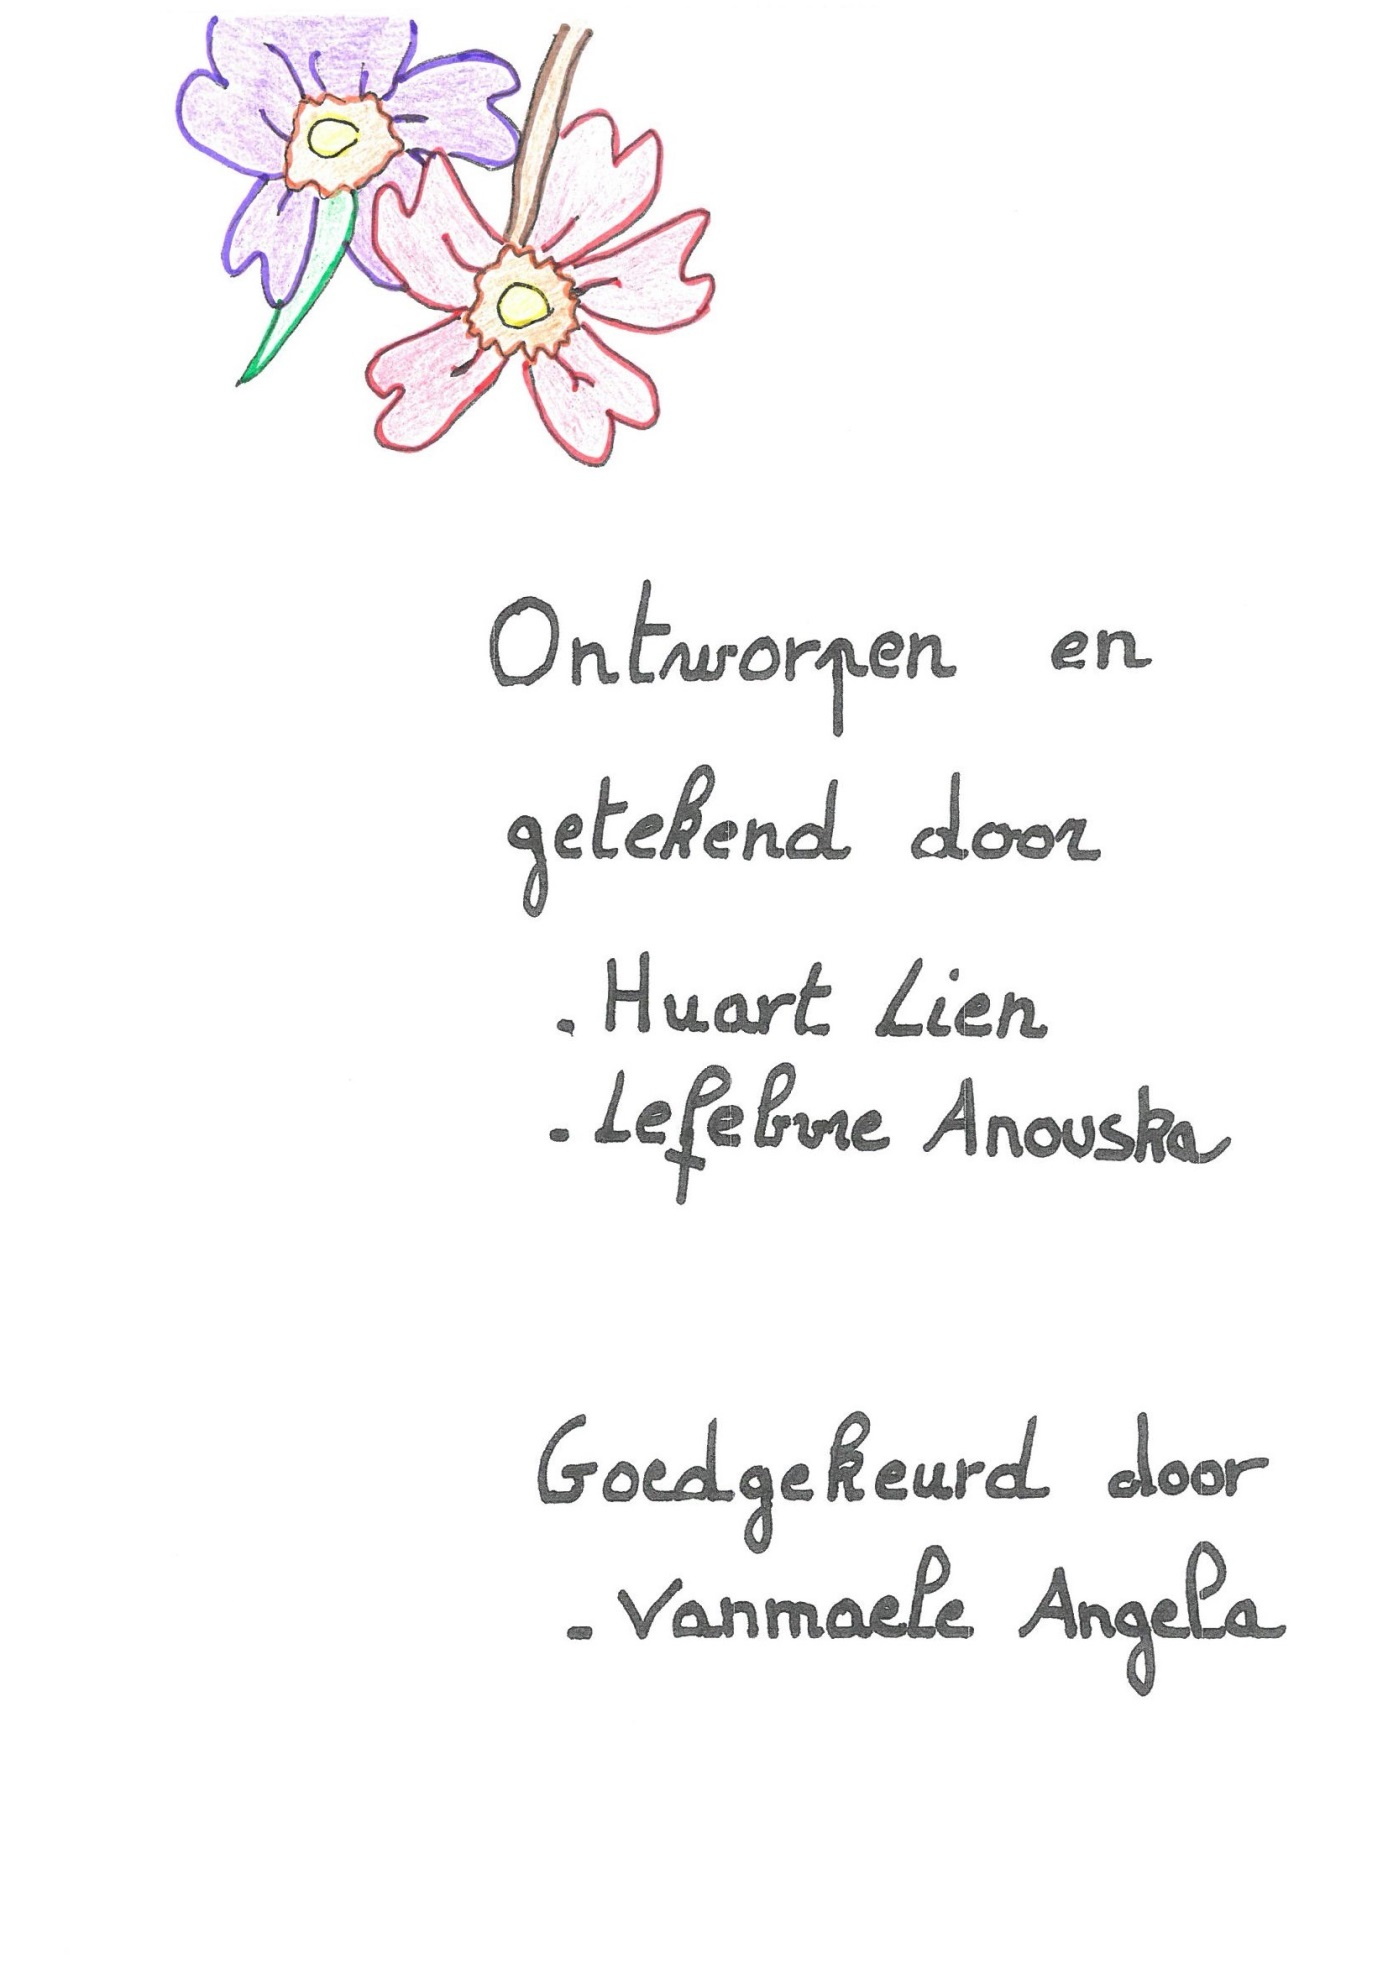 Ontworpen en
getekend door
. Huart Lien
- Lefebvre Anouska
Goedgekeurd door
- Vanmaele Angela